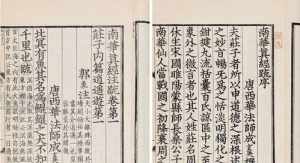 南華真經疏序
唐西華法師成玄
夫莊子者所以申道德之深根
之妙旨暢無為之恬淡明獨化
鉗揵九流括囊百氏諒區中之至
象外之微言者也其人姓莊名周
休生宋國睢陽蒙縣師長桑公子
南華仙人當戰國之初降衰周
南華真經注疏卷第一
莊子內篇逍遙遊第一
郭象注
唐西華法師成玄
北冥有魚其名為鯤鯤之大不知
千里也